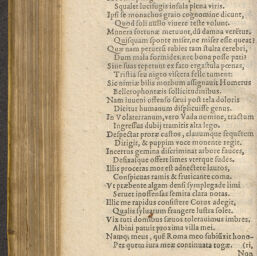 Squalet lucifugis insula plena viris.
Ipsi se monachos graio cognomine dicunt,
Quod soli nullo viuere teste volunt.
Munera fortunæ metuunt, dũ damna verẽtur.
Quisquam sponte miser, ne miser esse queat?
Quæ nam peruersi rabies tam stulta cerebri,
Dum mala formides, nec bona posse pati?
Siue suas repetunt ex fato ergastula pœnas,
Tristia seu nigro viscera felle tument:
Sic nimiæ bilis morbum assignauit Homerus
Bellerophonteis sollicitudinibus.
Nam iuueni offenso sæui post tela doloris
Dicitur humanum displicuisse genus.
In Volaterranum, vero Vada nomine, tractum
Ingressus dubij tramitis alta lego.
Despectat proræ custos, clauumque sequentem
Dirigit, & puppim voce monente regit.
Incertas gemina discriminat arbore fauces,
Defixasque offert limes vterque sudes.
Illis proceras mos est adnectere lauros,
Conspicuas ramis & fruticante coma.
Vt præbente algam densi symplegade limi
Seruet inoffensas semita clara notas.
Illic me rapidus consistere Corus adegit,
Qualis syluarum frangere lustra solet.
Vix tuti domibus sæuos tolerauimus imbres.
Albini patuit proxima villa mei.
Namq; meus, quẽ Romæ meo subiũxit hono-
Per quem iura meæ continuata togæ. (ri,
Non